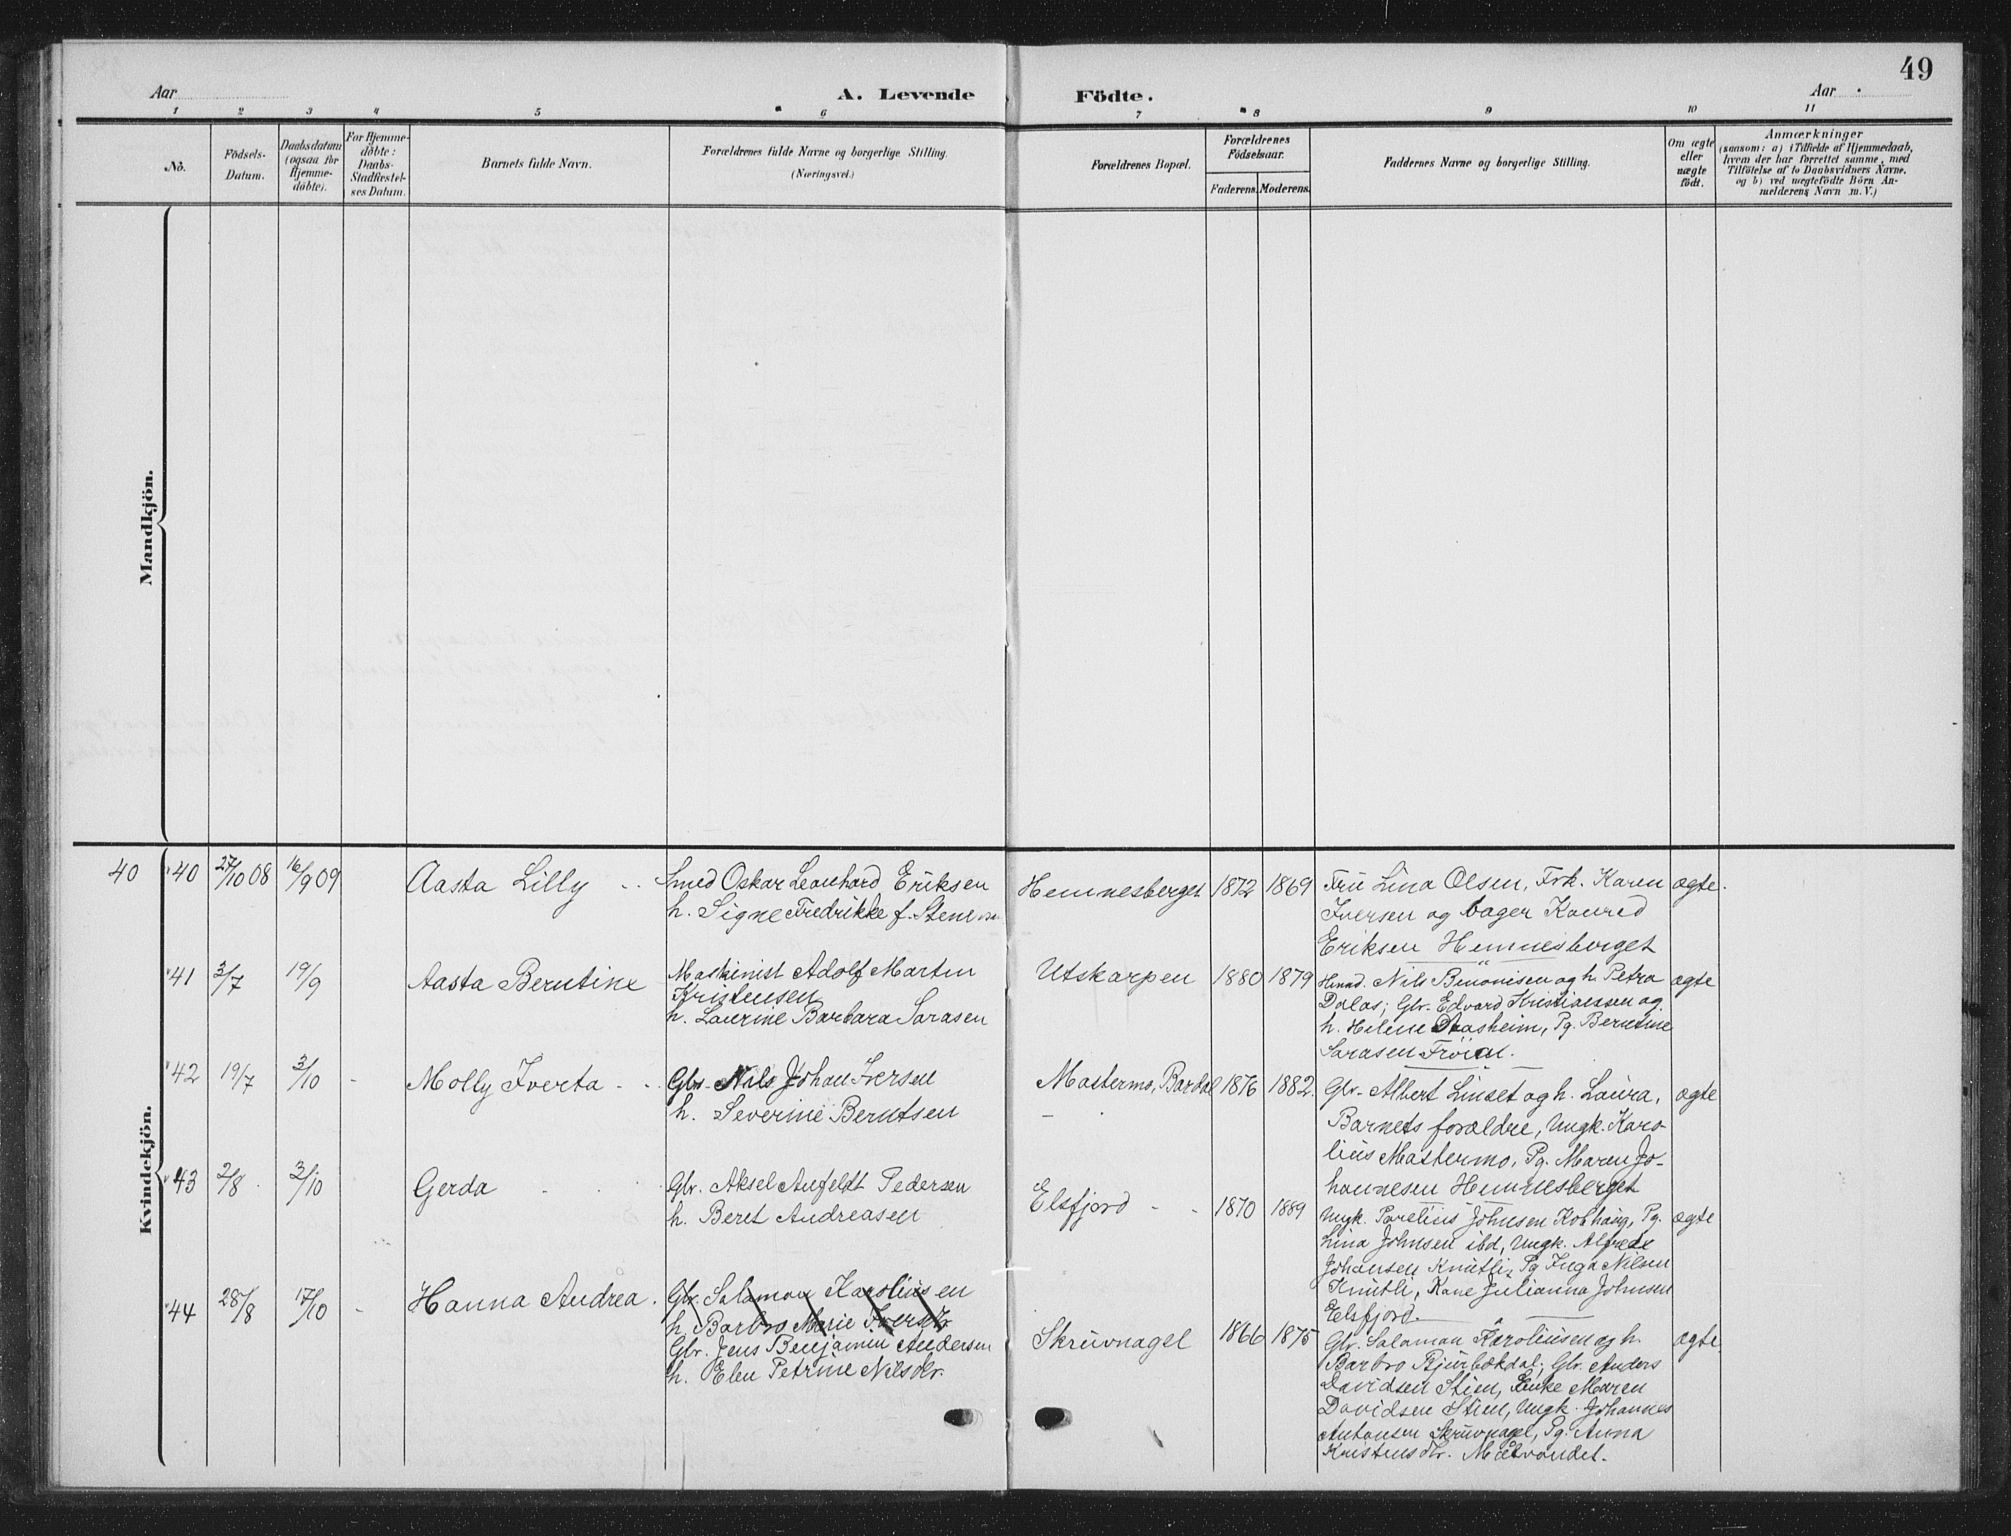 49
Aar
A. Levende
Födte.
Aar
1 2 3 4 5 6 7 8 9 10 11
No.
Födsels-
Datum.
Daabsdatum
(ogsaa for
Hjemme-
döbte).
For Hjemme-
döbte:
Daabs-
Stadfestel-
ses Datum.
Barnets fulde Navn.
Forældrenes fulde Navne og borgerlige Stilling.
(Næringsvei.)
Forældrenes Bopæl.
Forældrenes
Födselsaar.
Faderens. Moderens.
Faddernes Navne og borgerlige Stilling.
Om ægte
eller
uægte
födt.
Anmærkninger
(saasom: a) i Tilfælde af Hjemmedaab,
hvem der har forrettet samme, med
Tilföielse af to Daabsvidners Navne.
og b) ved uægtefödte Börn An-
melderens Navn m. V.)
Mandkjön.
Kvindekjön.
40 40 27/10 08 16/9 09 Aasta Lilly
Smed Oskar Leonhard Eriksen
h. Signe Fredrikke f.
Hemnesberget 1872 1869
Fru Lina Olsen, Frk. Karen
Iversen og bager Konrad
Eriksen Hemnesberget
ægte.
41 3/7 19/9 Aasta Berntine
Maskinist Adolf Martin
Kristensen
h. Laurine Barbara Sarasen
Utskarpen 1880 1879
Nils Benonisen og h. Petra
Dalas; Gbr. Edvard Kristiansen og
h. Helene Daasheim, Pg. Berntine
Sarasen
ægte
42 19/7 3/10 - Molly Iverta
Gbr. Nils Johan Iversen
h. Severine Berntsen
Mastermo, Bardal 1876 1882.
Gbr. Albert Linset og h. Laura,
Barnets forældre, Ungk. Karo-
lius Mastermo, Pg. Maren Jo-
hannesen Hemnesberget
ægte
43 2/8 3/10 Gerda
Gbr. Aksel Anfeldt Pedersen
h. Beret Andreasen
Elsfjord 1870 1889
Ungk. Parelius Johnsen Kobhaug, Pg.
Lina Johnsen ibd, Ungk. Alfred
Johansen Knutli, Pg Inga Nilsen
Knutli, Kone Julianna Johnsen
Elsfjord.
ægte
44 28/8 17/10 - Hanna Andrea.
Gbr. Salamon Karoliusen
h. Barbro Marie Iversdtr
Gbr. Jens Benjamin Andersen
h. Elen Petrine Nilsdtr.
Skruvnagel 1866 1875
Gbr. Salamon Karoliusen og h.
Barbro Bjurbækdal; Gbr. Anders
Davidsen Stien, Enke Maren
Davidsen Stien, Ungk. Johannes
Antonsen Skruvnagel, Pg. Anna
Kristensdtr. Matvandet.
ægte